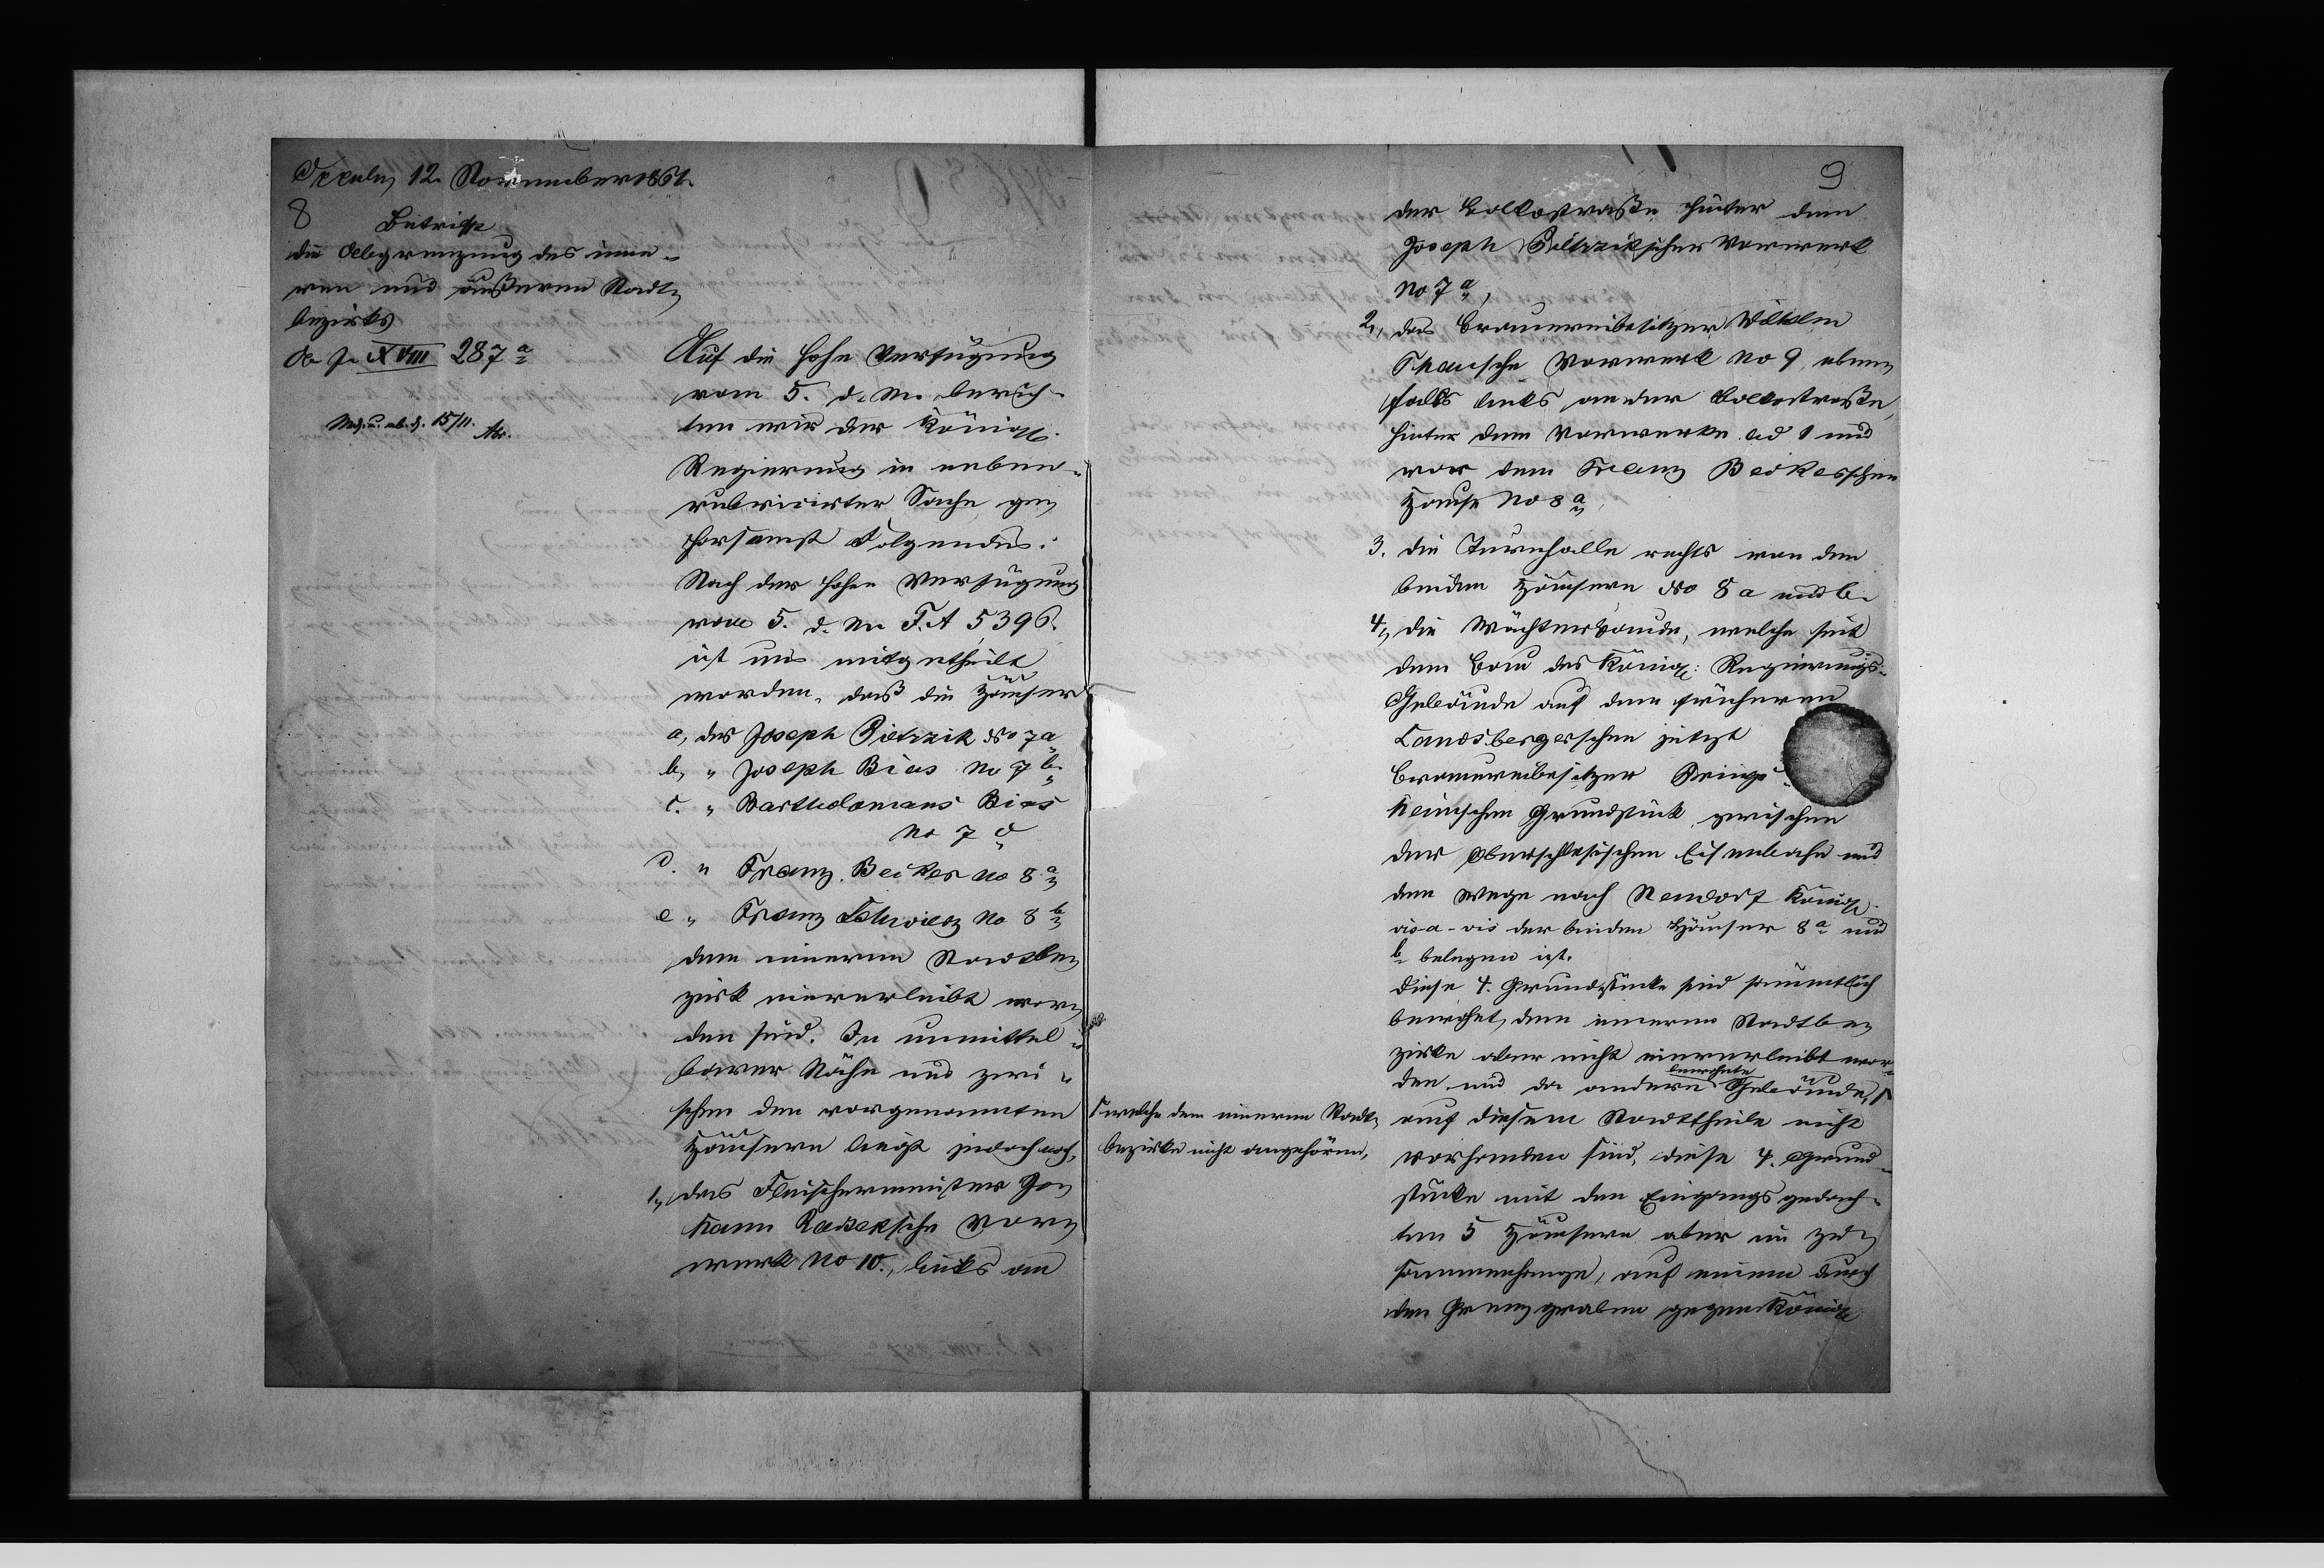 Oppeln, 12. November 1861.
8
Betrifft
die Abgrenzung des inne-
ren und äußeren Stadt-
bezirks
A. J. XVIII 287 a
15/11.
Auf die hohe Verfügung
vom 5. d. M. berich-
ten wir der Königl.
Regierung in neben-
rubricirter Sache ge-
horsamst Folgendes:
Nach der hohen Verfügung
vom 5. d. M. F. A 5396.
ist uns mitgetheilt
worden, daß die Häuser
a, des Joseph Pietrzik No 7a
b, " Joseph Bias No 7 b.
c. " Bartholomaeus Bias
No 7 c
d. " Franz Beikes No 8 a
e " Franz No 8 b
dem inneren Stadtbe-
zirk einverleibt wor-
den sind. In unmittel-
barer Nähe und zwi-
schen den vorgenannten
Häusern liegt jedoch noch,
1., das Fleischermeister Jo-
hann sche Vor-
werk No 10., links an
9
der Volkostraße hinter dem
Joseph Pietrzikschen Vorwerk
No 7 a,
2., das Brauereibesitzer Wilhelm
sche Vorwerk No 9, eben-
falls links an der Volkostraße,
hinter dem Vorwerke ad 1 und
vor dem Franz Beikesschen
Hause No 8 a,
3. die Turnhalle rechts von den
beiden Häusern No 8 a und b.
4., die Wächterbaude, welche seit
dem Bau des Königl: Regierungs-
Gebäude auf dem früheren
Landsbergerschen jetzt
Brauereibesitzer
heimschen Grundstück zwischen
der Oberschlesischen Eisenbahn und
dem Wege nach Neudorf Königl.
vis-a-vis der beiden Häuser 8 a und
b belegen ist.
Diese 4. Grundstücke sind sämmtlich
bewohnt, dem inneren Stadtbe-
zirke aber nicht einverleibt wor-
den und da andere bewohnte Gebäude,
welche dem inneren Stadt-
bezirke nicht angehören,
auf diesem Stadttheile nicht
vorhanden sind, diese 4. Grund-
stücke mit den Eingangs gedach-
ten 5 Häusern aber im Zu-
sammenhange, auf einem durch
den Grenzgraben gegen Königl: